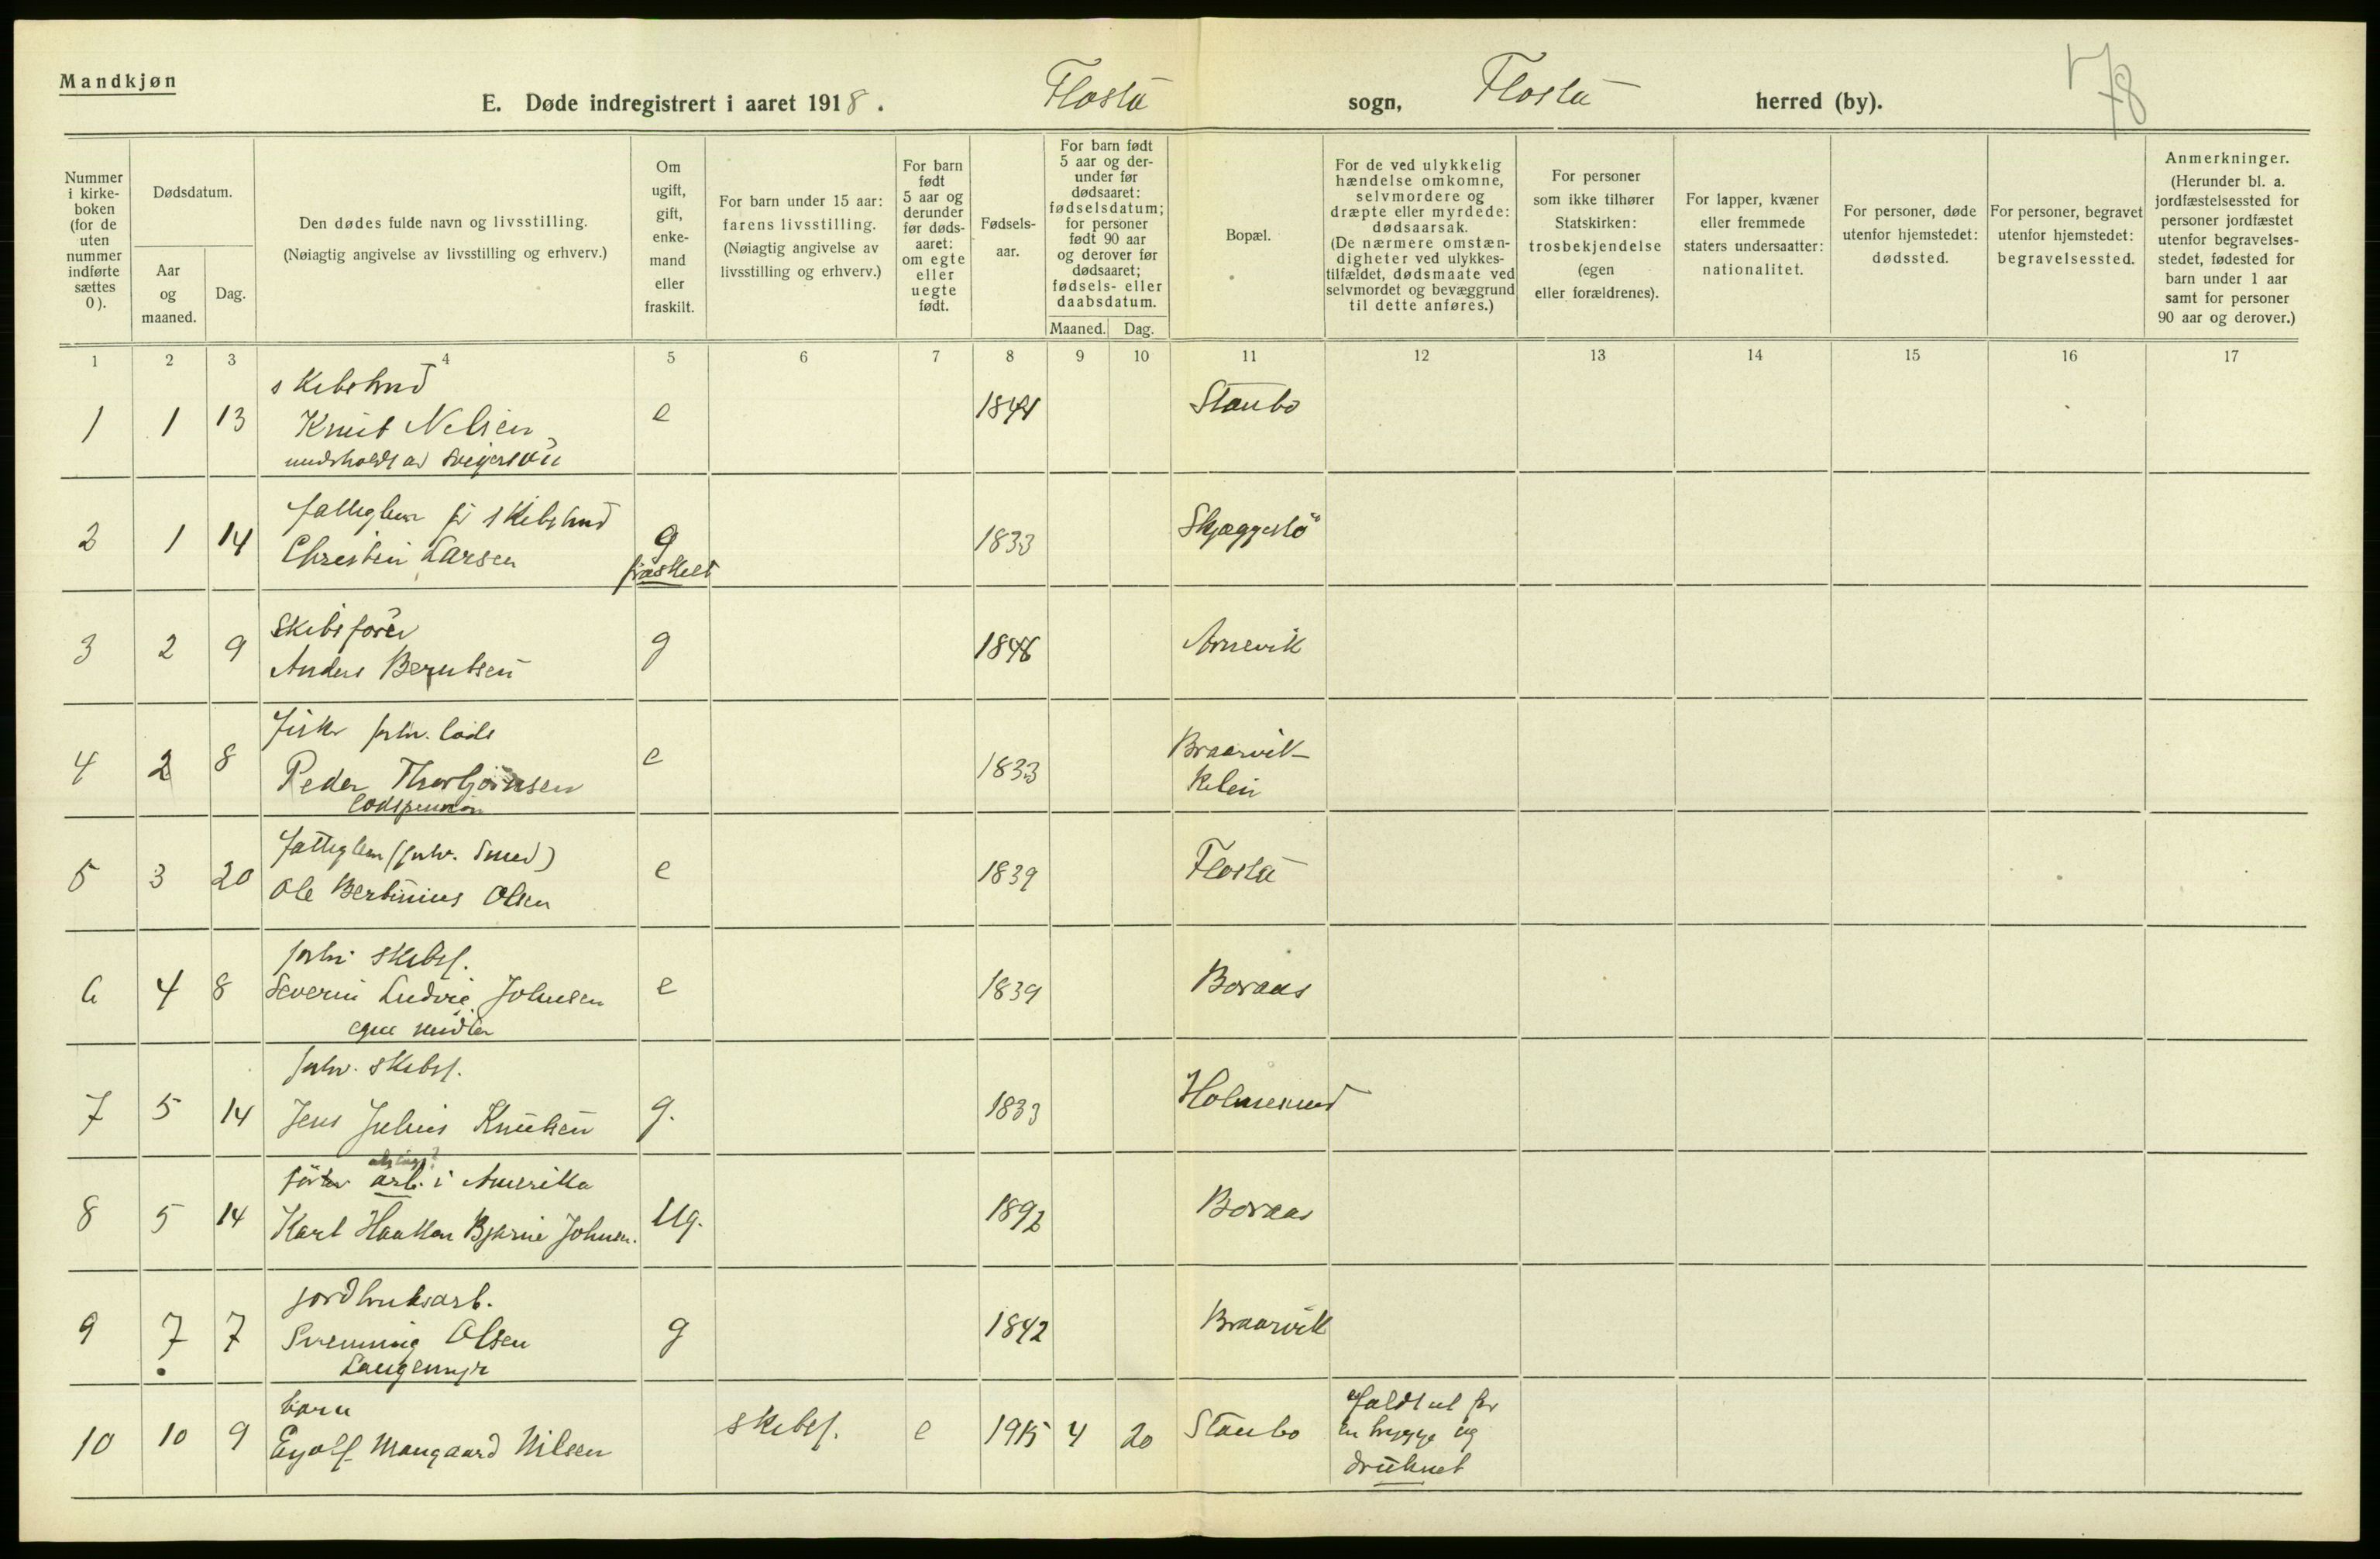 Mandkjøn
E. Døde indregistrert i aaret 1918. Flosta sogn, Flosta herred (by).
78
Nummer i kirke-boken (for de uten nummer indførte sættes 0).
Dødsdatum.
Aar og maaned.
Dag.
Den dødes fulde navn og livsstilling.
(Nøiagtig angivelse av livsstilling og erhverv.)
Om ugift, gift, enke-mand eller fraskilt.
For barn under 15 aar: farens livsstilling.
(Nøiagtig angivelse av livsstilling og erhverv.)
For barn født 5 aar og derunder før døds-aaret: om egte eller uegte født.
Fødsels-aar.
For barn født 5 aar og der-under før dødsaaret: fødselsdatum; for personer født 90 aar og derover før dødsaaret; fødsels- eller daabsdatum.
Maaned.
Dag.
Bopæl.
For de ved ulykkelig hændelse omkomne, selvmordere og dræpte eller myrdede: dødsaarsak.
(De nærmere omstæn-digheter ved ulykkes-tilfældet, dødsmaate ved selvmordet og bevæggrund til dette anføres.)
For personer som ikke tilhører Statskirken: trosbekjendelse (egen eller forældrenes).
For lapper, kvæner eller fremmede staters undersaatter: nationalitet.
For personer, døde utenfor hjemstedet: dødssted.
For personer, begravet utenfor hjemstedet: begravelsessted.
Anmerkninger.
(Herunder bl. a. jordfæstelsessted for personer jordfæstet utenfor begravelses-stedet, fødested for barn under 1 aar samt for personer 90 aar og derover.)
1 2 3 4 5 6 7 8 9 10 11 12 13 14 15 16 17
skibstmd
1 1 13 Knut Nelsen e 1841 Staubo
undholdt av svigersøn
fattiglem fr skibstmd
2 1 14 Christen Larsen g 1833 Skjæggestø
fraskilt
Skibsfører
3 2 9 Anders Berntsen g 1848 Arnevik
Fisker forhv. lods
4 2 8 Peder Thorbjørnsen e 1833 Braarvik-
Kilen
lodspension
fattiglem (forhv. smed)
5 3 20 Ole Bertinius Olsen e 1839 Flosta
forhv skibsf.
6 4 8 Severin Ludvig Johnsen e 1839 Boraas
egne midler
forhv. skibsf.
7 5 14 Jens Julius Knutsen g. 1833 Holmesund
arb. i Amerika
8 5 14 Karl Haakon Bjarne Johnsen. Ug. 1892 Boraas
jordbruksarb.
9 7 7 Svenning Olsen g 1842 Braarvik
Langemyr
barn
10 10 9 Eyolf Mougaard Nilsen skibsf. e 1915 4 20 Staubo
faldt ut for
en brygge og
druknet